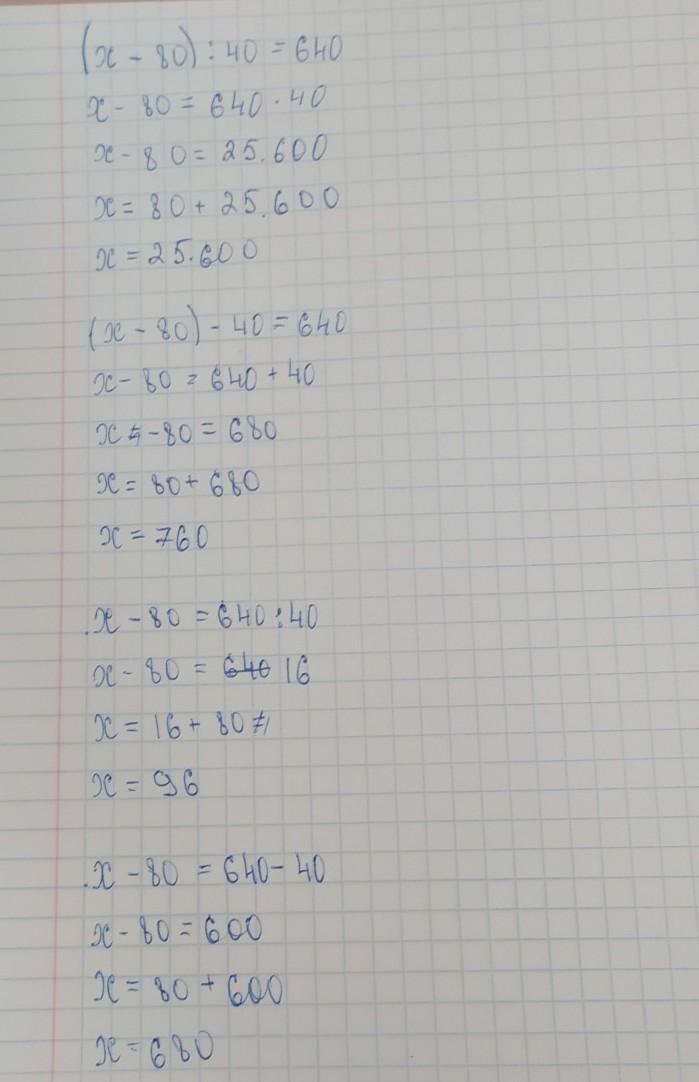 (x - 80) : 40 = 640
x - 80 = 640 · 40
x - 80 = 25.600
x = 80 + 25.600
x = 25.600
(x - 80) - 40 = 640
x - 80 = 640 + 40
x - 80 = 680
x = 80 + 680
x = 760
x - 80 = 640 : 40
x - 80 = 640 16
x = 16 + 80
x = 96
x - 80 = 640 - 40
x - 80 = 600
x = 80 + 600
x = 680